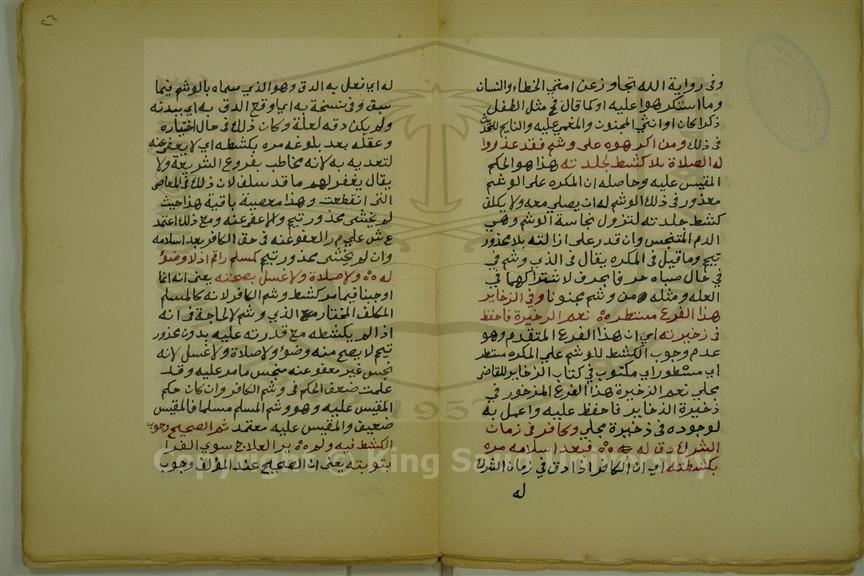 وفى رواية الله تجاوز عن امتي الخطاء والنسان
وما استكرهوا عليه اوكما قال في مثل الطفل
ذكرا كان او انثي المجنون والمغمي عليه والنايم
في ذلك ومن اكرهوه على وشم فقد عذروا
له الصلاة بلا كشط لجلدته هذا هو الحكم
المقيس عليه وحاصله ان المكره على الوشم
معذور في ذلك الوشم له ان يصلي معه ولا يكلف
كشط جلدته لتزول نجاسة الوشم وهي
الدم المتنجس وان قدر على ازالته بلا محذور
تيمم وما قيل في المكره يقال في الذي وشم في
في حال صباه حرفا بحرف لاشتراكهما في
العله ومثله من وشم مجنونا وفي الذخاير
هذا الفرع مستطره نعم الذخيرة فاحفظ
في ذخيرته اي ان هذا الفرع المتقدم وهو
عدم وجوب الكشط للوشم علي المكره مستطر
اي مسطورا في مكتوب في كتاب الذخاير للقاضي
مجلي نعم الذخيرة هذا الفرع المذخور في
ذخيرة الذخاير فاحفظ عليه واعمل به
لوجوده في ذخيرة مجلي وكافر في زمان
الشرك دق له فبعد اسلامه مره
بكشطته اي ان الكافر اذا دق في زمان الشرك
له
له اي فعل به الدق وهو الذي سماه بالوشم فيما
سبق وفي نسخة به اي وقع الدق به اي ببدنه
ولم يكن دقه لعلة وكان ذلك في حال اختياره
وعقله بعد بلوغه مره بكشطه اي لا يعفى عنه
لتعديه به لانه مخاطب بفروع الشريعة ولا
يقال يغفر لهم ما قد سلف لان ذلك في المعاصي
التي انقطعت وهذا معصية باقية هذا حيث
لم يخشى محذور تيمم والا عفو عنه ومع ذلك اعتمد
ع ش علي م ر العفو عنه في حق الكافر بعد اسلامه
وان لم يخشى محذور تيمم كمسلم رام اذ لا وضؤ
له ولا صلاة ولا غسل بصحته يعني انه انما
اوجبنا فيما مر كشط وشم الكافر لانه كالمسلم
المكلف المختار مع الذي وشم لا لحاجة في انه
اذا لم يكشطه مع قدرته عليه بدون محذور
تيمم لا يصح منه وضؤ ولا صلاة ولا غسل لانه
نجس غير معفو عنه متنجس ما مر عليه وقد
علمت ضعف الحكم في وشم الكافر وان كان حكم
المقيس عليه وهو وشم المسلم مسلما فالمقيس
ضعيف والمقيس عليه معتمد ثم الصحيح وجوب
الكشط فيه ولو بر العلاج سوي الفرا
بتوبته يعني ان الصحيح عند المؤلف وجوب
Copyright © King Saud University
1957